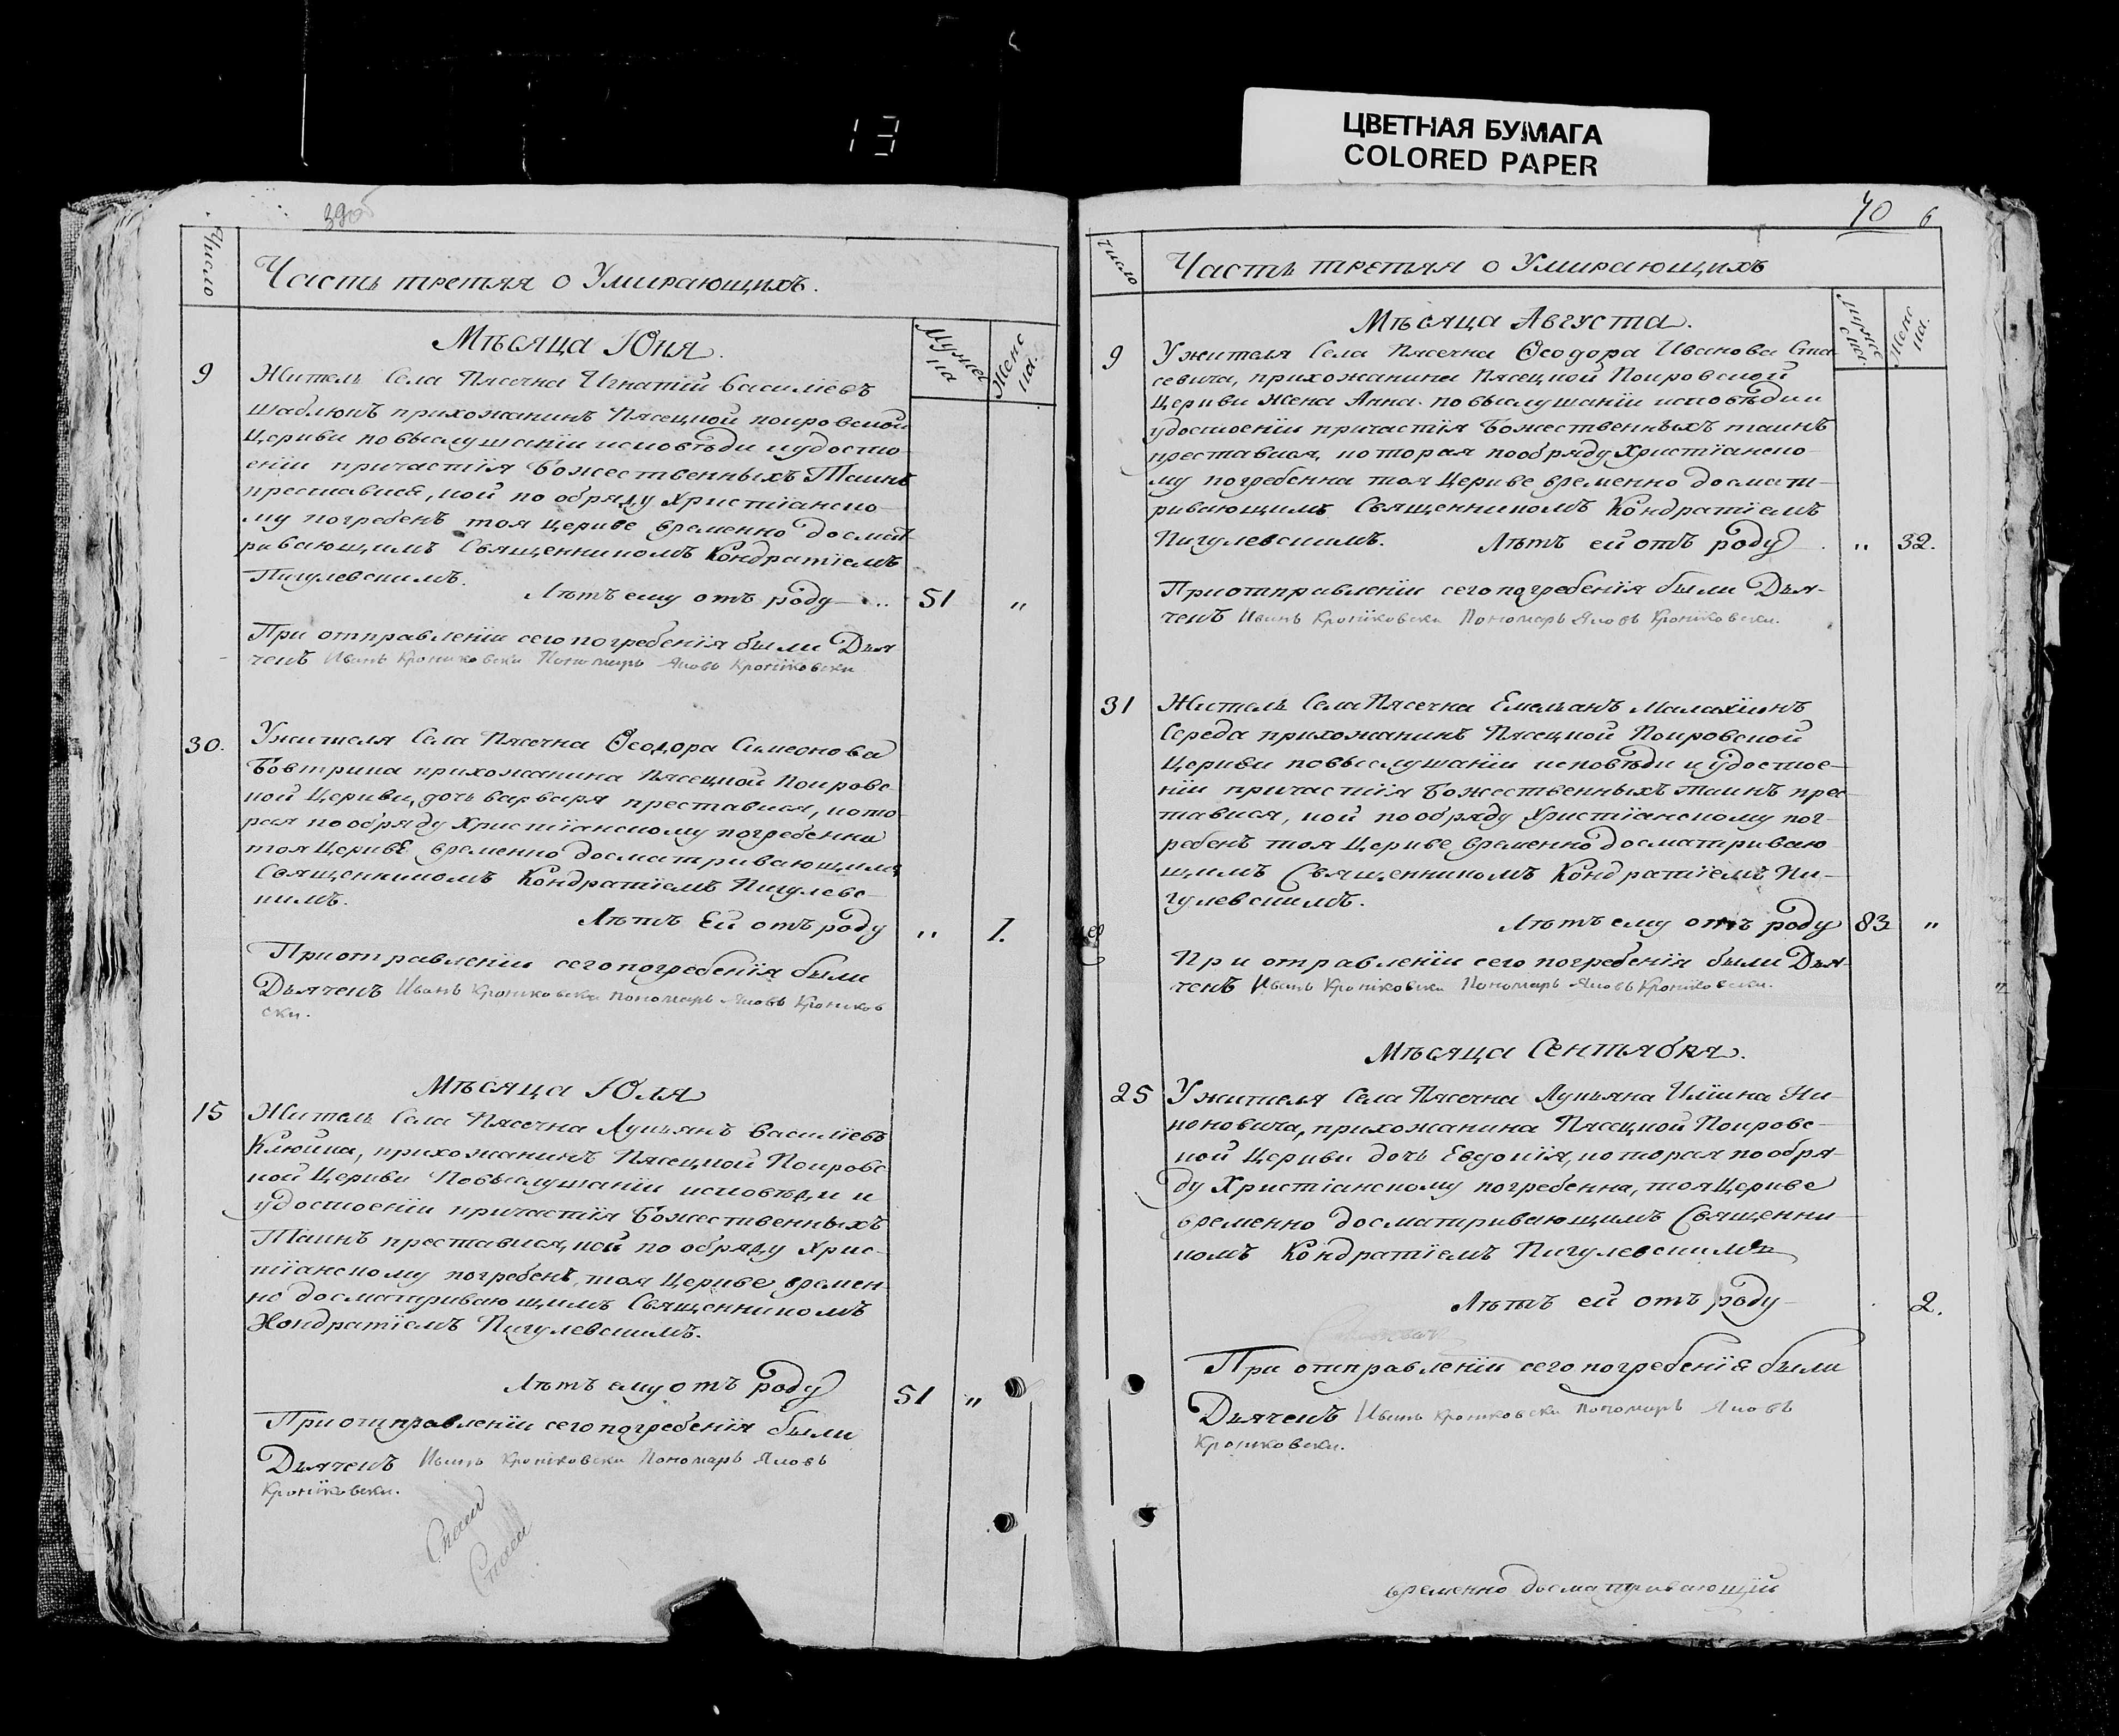 13
ЦВЕТНАЯ БУМАГА
COLORED PAPER
39об
Число
Часть третяя о Умирающихъ.
Мужес
ка
Женс
ка.
Мѣсяца Юня.
9
Житель Села Пясечна Игнатій Василіевъ
Шаблюкъ прихожанинъ Пясецкой покровской
Церкви по выслушаніи исповѣди и удосто
еніи причастія Божественныхъ Таинъ
преставися, кой по обряду Христіанско
му погребенъ тоя церкве временно досмат
ривающимъ Священникомъ Кондратіемъ
Пигулевскимъ.
Лѣтъ ему отъ роду
51
"
При отправленіи сего погребенія были Дья
чекъ Иванъ Крониковски Пономарь Яковъ Крониковски
30.
У жителя Села Пясечна Ѳеодора Симеонова
Бовтрика прихожанина Пясецкой Покровс
кой Церкви, дочь варваря преставися, кото
рая по обряду Христіанскому погребенна
тоя Церкве временно досматривающимъ
Священникомъ Кондратіемъ Пигулевс
кимъ.
Лѣтъ Ей отъ роду
"
1.
При отправленіи сего погребенія были
Дьячекъ Иванъ Крониковски пономарь Яковъ Кроников
ски.
Мѣсяца Юля
15
Житель Села Пясечна Лукьянъ Василіевъ
Клюйка, прихожанинъ Пясецкой Покровс
кой Церкви По выслушаніи исповѣди и
удостоеніи причастія Божественныхъ
Таинъ преставися, кой по обряду Хрис
тіанскому погребенъ, тоя Церкве времен
но досматривающимъ Священникомъ
Кондратіемъ Пигулевскимъ.
Лѣтъ ему отъ роду
51
"
При отправленіи сего погребенія были
Дьячекъ Иванъ Крониковски Пономарь Яковъ
Крониковски.
40
6
число
Часть третяя о Умирающихъ
Мужес
ка
Женс
ка.
Мѣсяца Августа.
9
У жителя Села Пясечна Ѳеодора Иванова Ста
севича, прихожанина Пясецкой Покровской
Церкви жена Анна по выслушаніи исповѣди и
удостоеніи причастія Божественныхъ таинъ
преставися, которая по обряду Христіанско
му погребенна тоя Церкве временно досмат-
ривающимъ Священникомъ Кондратіемъ
Пигулевскимъ.
Лѣтъ ей отъ роду
"
32.
При отправленіи сего погребенія были Дья-
чекъ Иванъ Крониковски Пономарь Яковъ Крониковски.
31
Житель Села Пясечна Емельянъ Малахіинъ
Середа прихожанинъ Пясецкой Покровской
Церкви по выслушаніи исповѣди и удостое-
ніи причастія Божественныхъ таинъ прес
тавися, кой по обряду Христіанскому пог-
ребенъ тоя Церкве временно досматриваю
щимъ Священникомъ Кондратіемъ Пи-
гулевскимъ.
Лѣтъ ему отъ роду
83
"
При отправленіи сего погребенія были Дья-
чекъ Иванъ Крониковски Пономарь Яковъ Крониковски.
Мѣсяца Сентября.
25
У жителя Села Пясечна Лукьяна Иліина Ни-
коновича, прихожанина Пясецкой Покровс-
кой Церкви дочь Евдокія, которая по обря-
ду Христіанскому погребенна, тоя Церкве
временно досматривающимъ Священни-
комъ Кондратіемъ Пигулевскимъ
Лѣтъ ей отъ роду
2.
При отправленіи сего погребенія были
Дьячекъ Иванъ Крониковски пономарь Яковъ
Крониковски.
временно досматривающій